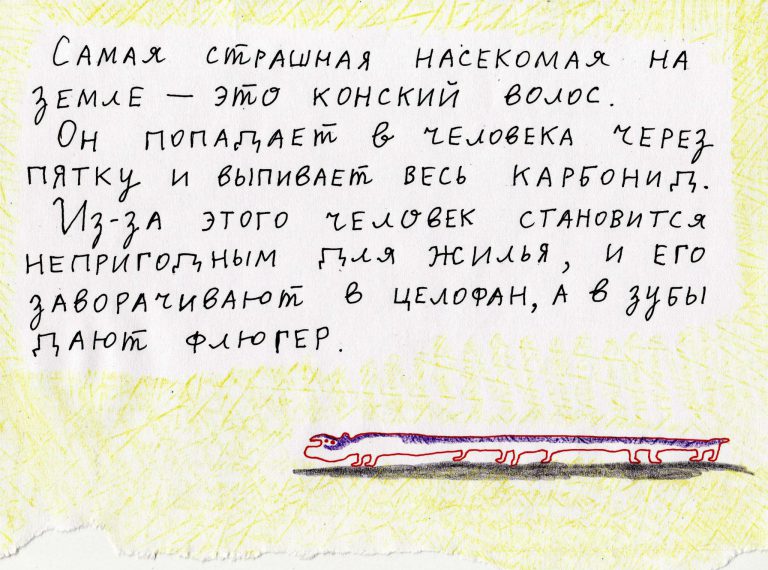 Самая страшная насекомая на
земле — это конский волос.
Он попадает в человека через
пятку и выпивает весь карбонид.
Из-за этого человек становится
непригодным для жилья, и его
заворачивают в целофан, а в зубы
дают флюгер.